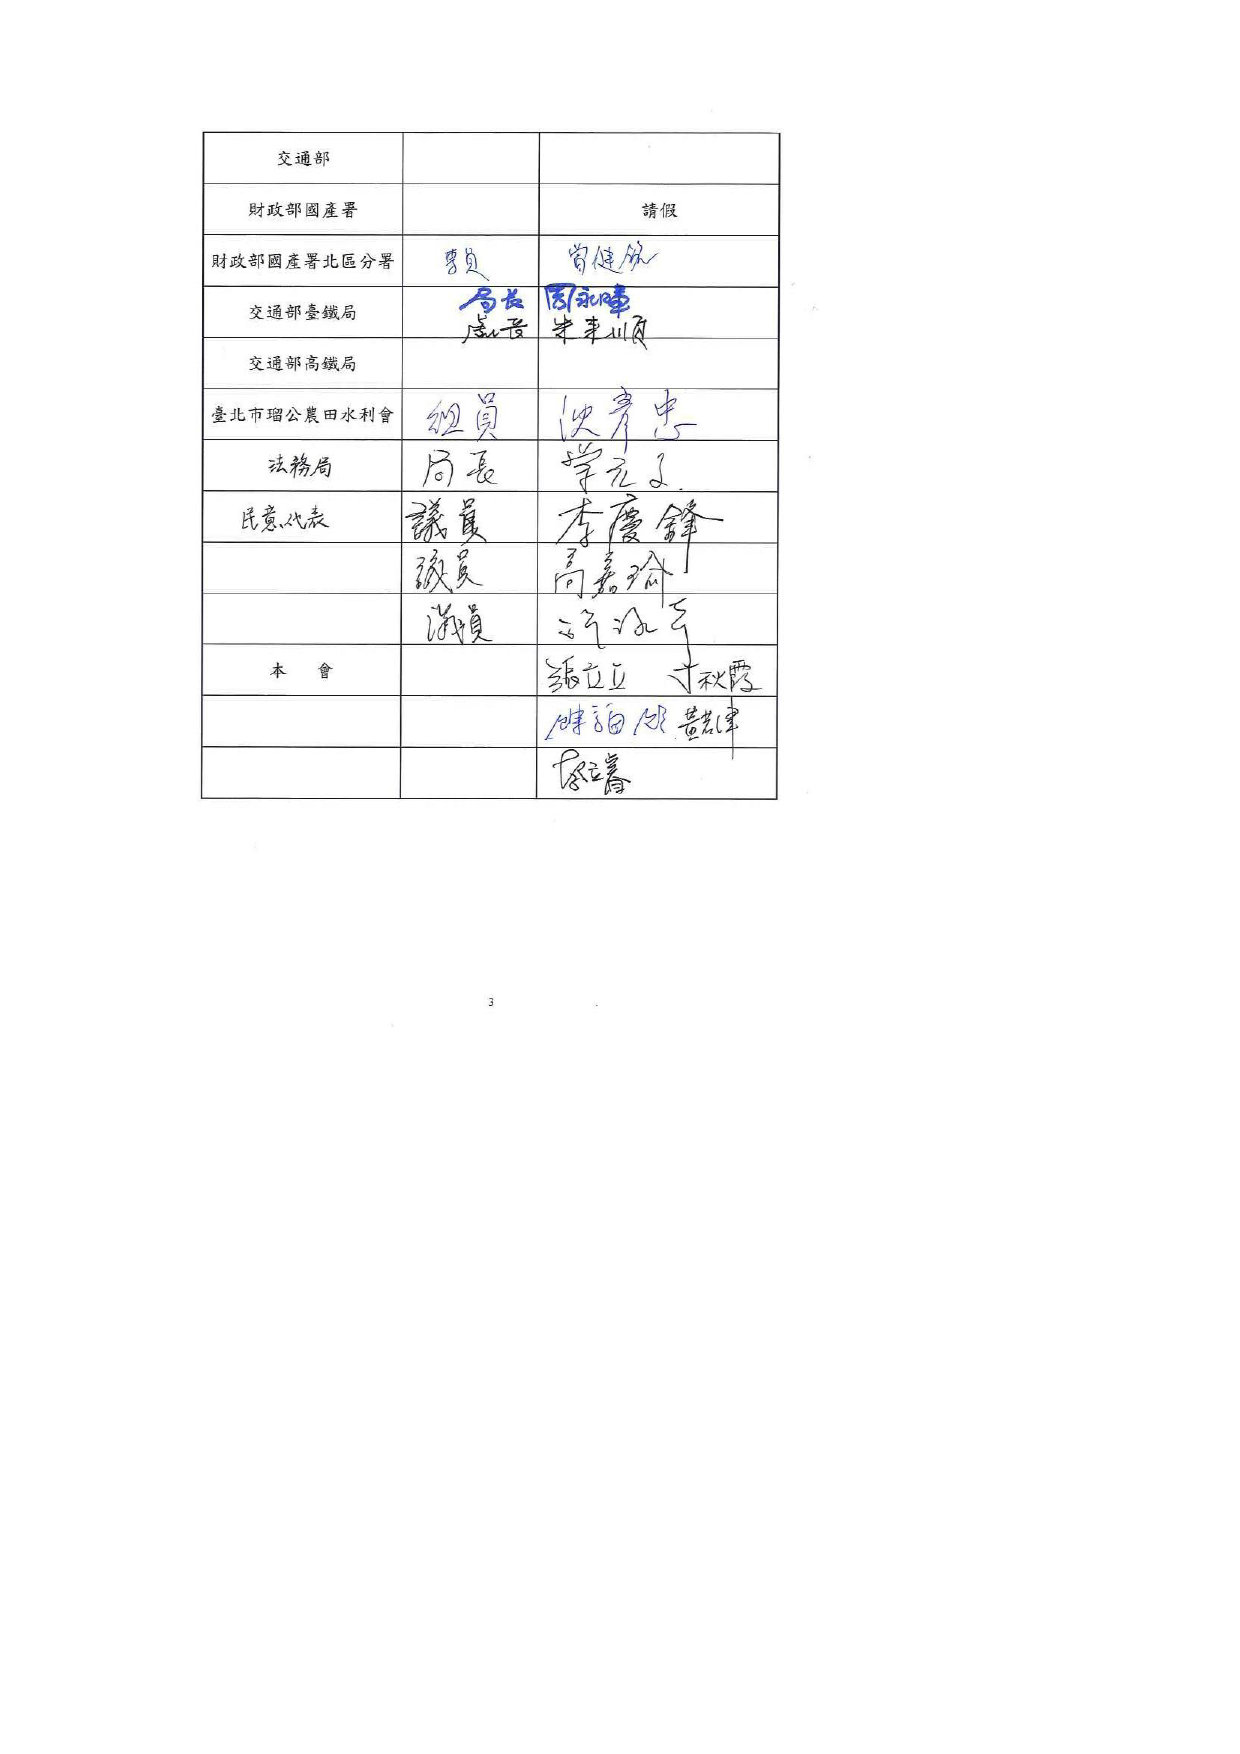 交通部
財政部國產署 請假
財政部國產署北區分署 專員 曾健銘
交通部臺鐵局 局長 周永暉
處長 朱來順
交通部高鐵局
臺北市瑠公農田水利會 組員 彥忠
法務局 局長
民意代表 議員 李慶鋒
議員 高嘉瑜
議員
本 會 張立立 秋霞
黃若津
3